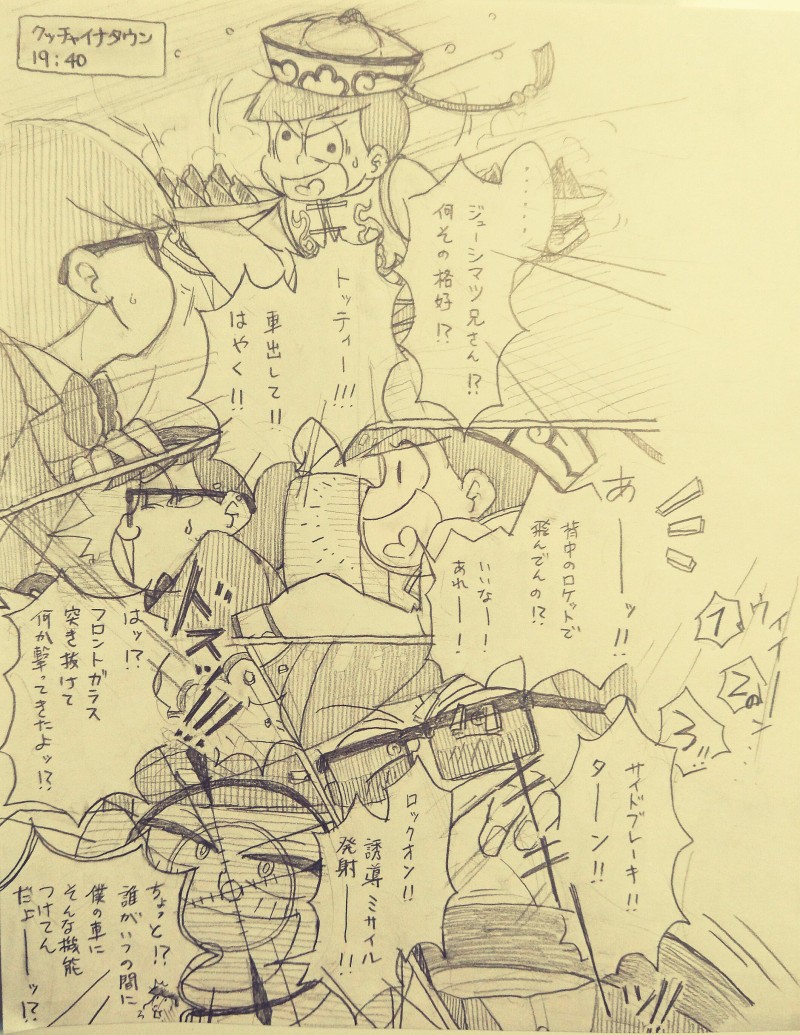 クッチャイナタウン
19:40
‥‥‥
ジューシマツ兄さん!?
何その格好!?
トッティー!!!
車出して!!
はやく!!
あーーッ!!
背中のロケットで
飛んでんの!?
いいなーー!
あれーー!
ドスッ!!!
はッ!?
フロントガラス
突き抜けて
何か撃ってきたよッ!?
ウィーーン
1
2の
3!!
サイドブレーキ!!
ターーン!!
ロックオン!!
誘導ミサイル
発射ーーー!!
ちょっと!?
誰がいつの間に
僕の車に
そんな機能
つけてん
だよーーッ!?